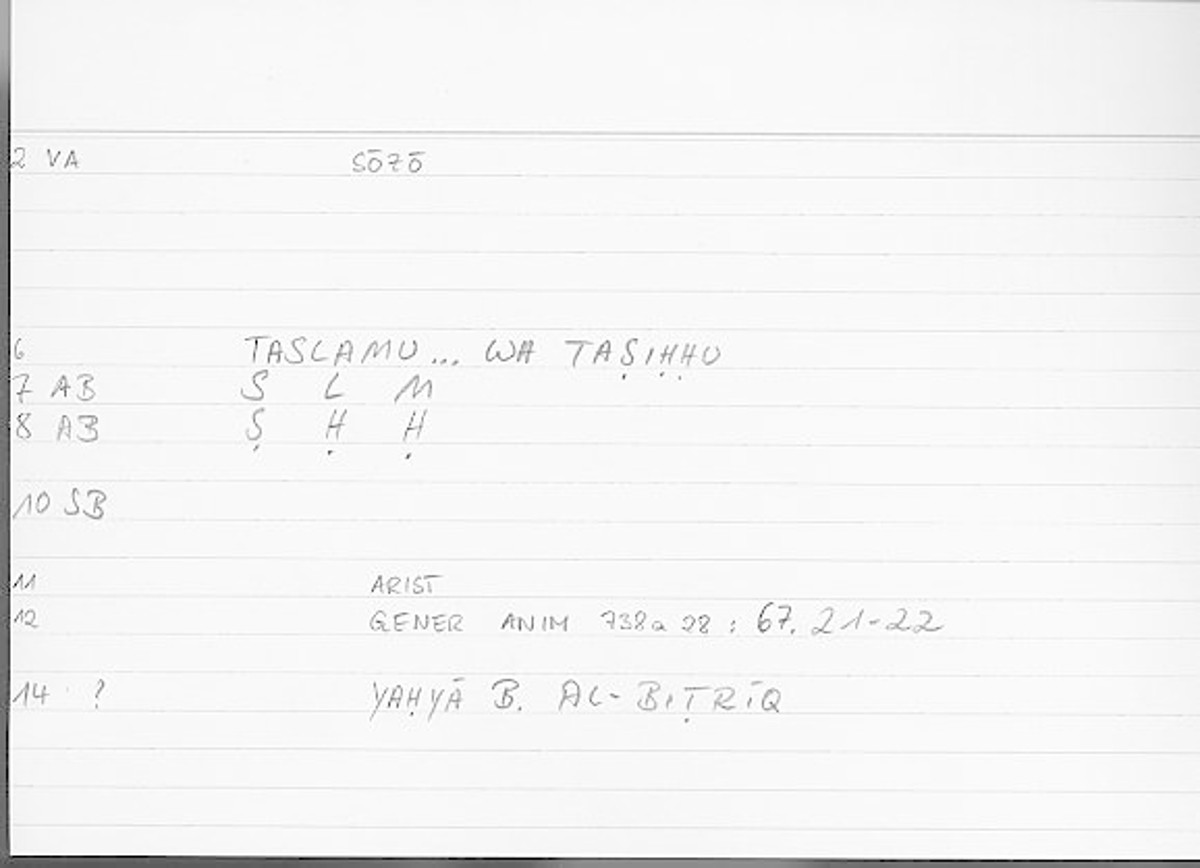 2 VA SŌZŌ
6 TASLAMU... WA TAṢIḤḤU
7 AB S L M
8 AB Ṣ Ḥ Ḥ
10 SB
11 ARIST
12 GENER ANIM 738a 28 : 67. 21-22
14 ? YAḤYĀ B. AL-BIṬRĪQ